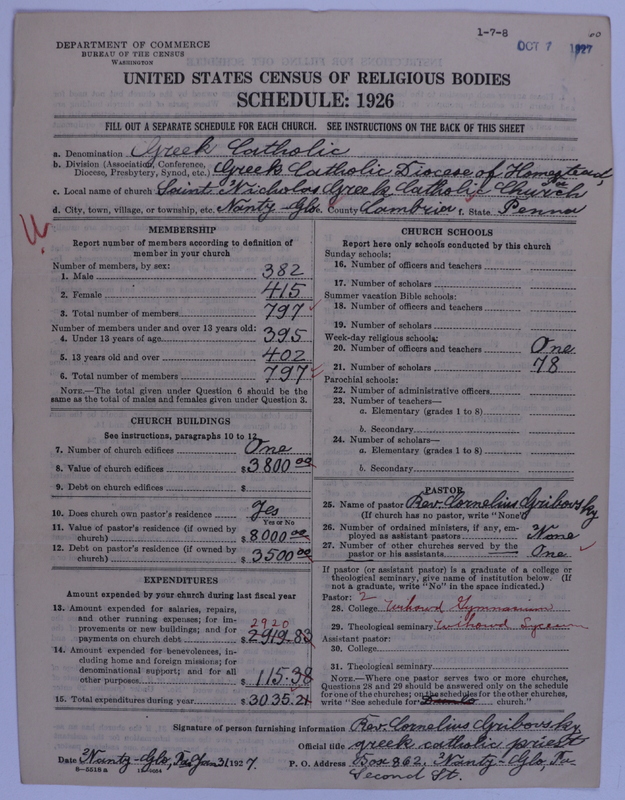 1-7-8
OCT 7 1927
DEPARTMENT OF COMMERCE
BUREAU OF THE CENSUS
WASHINGTON
UNITED STATES CENSUS OF RELIGIOUS BODIES
SCHEDULE: 1926
FILL OUT A SEPARATE SCHEDULE FOR EACH CHURCH. SEE INSTRUCTIONS ON THE BACK OF THIS SHEET
a. Denomination Greek Catholic
b. Division (Association, Conference, Diocese, Presbytery, Synod, etc.) Greek Catholic Diocese of Homestead, Pa
c. Local name of church Saint Nicholas Greek Catholic Church
d. City, town, village, or township, etc. Nanty-Glo e. County Cambria f. State Penna
MEMBERSHIP
Report number of members according to definition of
member in your church
Number of members, by sex:
1. Male 382
2. Female 415
3. Total number of members 797
Number of members under and over 13 years old:
4. Under 13 years of age 395
5. 13 years old and over 402
6. Total number of members 797
NOTE.—The total given under Question 6 should be
same as the total of males and females given under Question 3.
CHURCH BUILDINGS
See instructions, paragraphs 10 to 12
7. Number of church edifices One
8. Value of church edifices $3800 00
9. Debt on church edifices $
10. Does church own pastor's residence Yes
Yes or No
11. Value of pastor's residence (if owned by
church) $8000 00
12. Debt on pastor's residence (if owned by
church) $3500 00
EXPENDITURES
Amount expended by your church during last fiscal year
13. Amount expended for salaries, repairs,
and other running expenses; for im-
provements or new buildings; and for
payments on church debt 2920 $2919.83
14. Amount expended for benevolences, in-
cluding home and foreign missions; for
denominational support; and for all
other purposes $115.38
15. Total expenditures during year $3035.21
CHURCH SCHOOLS
Report here only schools conducted by this church
Sunday schools:
16. Number of officers and teachers
17. Number of scholars
Summer vacation Bible schools:
18. Number of officers and teachers
19. Number of scholars
Week-day religious schools:
20. Number of officers and teachers One
21. Number of scholars 78
Parochial schools:
22. Number of administrative officers
23. Number of teachers—
a. Elementary (grades 1 to 8)
b. Secondary
24. Number of scholars—
a. Elementary (grades 1 to 8)
b. Secondary
PASTOR
25. Name of pastor Rev. Cornelius Gribovsky
(If church has no pastor, write "None")
26. Number of ordained ministers, if any, em-
ployed as assistant pastors None
27. Number of other churches served by the
pastor or his assistants One
If pastor (or assistant pastor) is a graduate of a college or
theological seminary, give name of institution below. (If
not a graduate, write "No" in the space indicated.)
Pastor: 2
28. College Gymnasium
29. Theological seminary Lyceum
Assistant pastor:
30. College
31. Theological seminary
NOTE.—Where one pastor serves two or more churches,
Questions 28 and 29 should be answered only on the schedule
for one of the churches; on the schedules for the other churches,
write "See schedule for church."
Signature of person furnishing information Rev. Cornelius Gribovsky
Official title greek catholic priest
Date Nanty-Glo, Pa Jan 31 1927. P. O. Address Box 862, Nanty-Glo, Pa
Second St.
8-5518 a